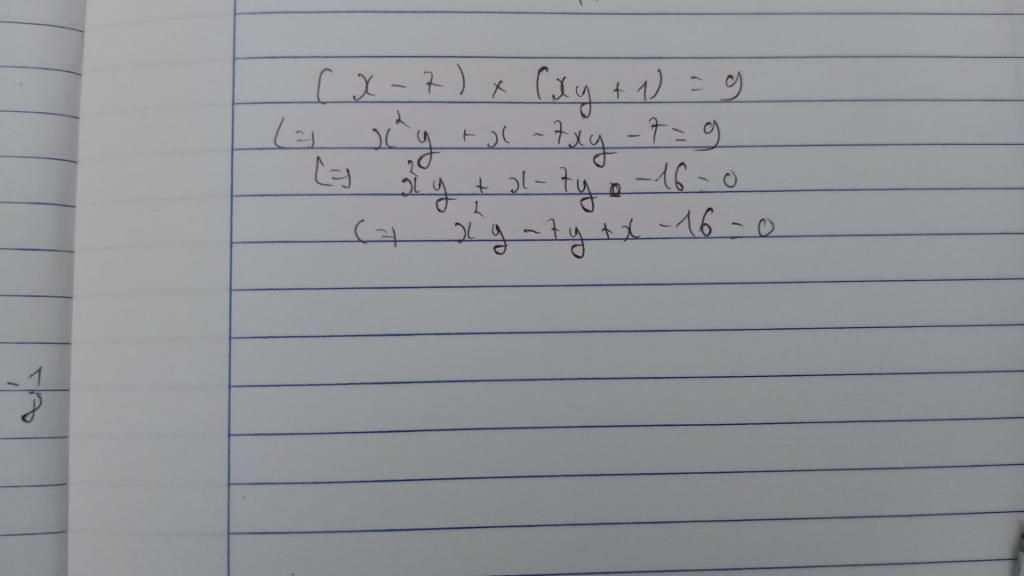 (x - 7) × (xy + 1) = 9
(=) x²y + x - 7xy - 7 = 9
(=) x²y + x - 7y - 16 = 0
(=) x²y - 7y + x - 16 = 0
-1
8